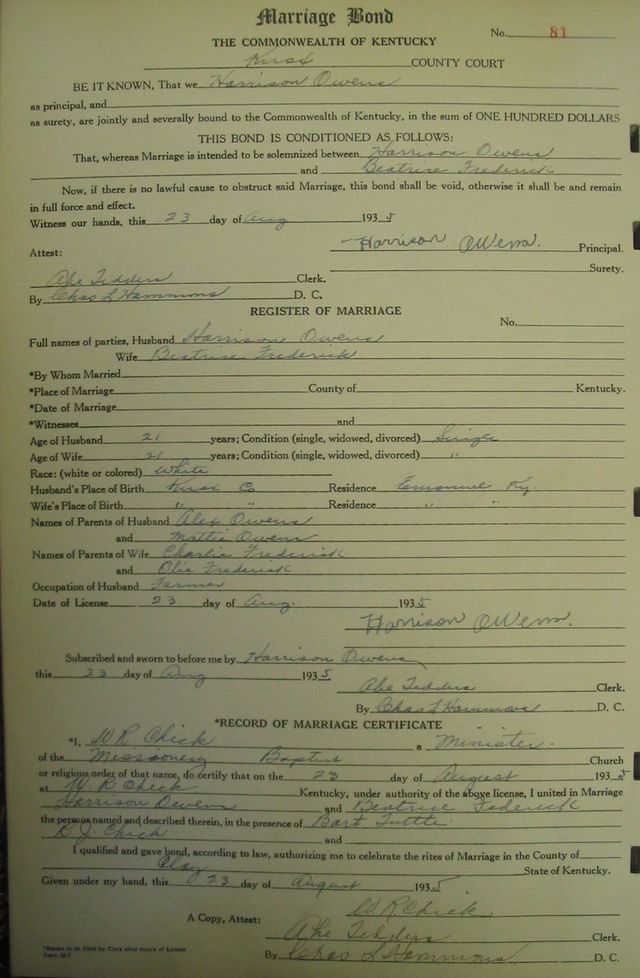 Marriage Bond
No. 81
THE COMMONWEALTH OF KENTUCKY
Knox COUNTY COURT
BE IT KNOWN, That we Harrison Owens
as principal, and
as surety, are jointly and severally bound to the Commonwealth of Kentucky, in the sum of ONE HUNDRED DOLLARS
THIS BOND IS CONDITIONED AS FOLLOWS:
That, whereas Marriage is intended to be solemnized between Harrison Owens
and Beatrice Frederick
Now, if there is no lawful cause to obstruct said Marriage, this bond shall be void, otherwise it shall be and remain
in full force and effect.
Witness our hands, this 23 day of Aug 1935
Harrison Owens. Principal.
Attest:
Surety.
Abe Tedders Clerk.
By Chas L Hammons D. C.
REGISTER OF MARRIAGE
No.
Full names of parties, Husband Harrison Owens
Wife Beatrice Frederick
*By Whom Married
*Place of Marriage County of Kentucky.
*Date of Marriage
*Witnesses and
Age of Husband 21 years; Condition (single, widowed, divorced) Single
Age of Wife 21 years; Condition (single, widowed, divorced) "
Race: (white or colored) White
Husband's Place of Birth Knox Co Residence Emanuel Ky.
Wife's Place of Birth " " Residence " "
Names of Parents of Husband Alex Owens
and Mattie Owens
Names of Parents of Wife Charlie Frederick
and Olie Frederick
Occupation of Husband Farmer
Date of License 23 day of Aug. 1935
Harrison Owens.
Subscribed and sworn to before me by Harrison Owens
this 23 day of Aug 1935
Abe Tedders Clerk.
By Chas L Hammons D. C.
*RECORD OF MARRIAGE CERTIFICATE
*I, W R Chick a Minister.
of the Missionery Baptist Church
or religious order of that name, do certify that on the 23 day of August 1935
at W. R Check Kentucky, under authority of the above license, I united in Marriage
Harrison Owens and Beatrice Federick
the persons named and described therein, in the presence of Bart Tuttle.
K. J. Chick and
I qualified and gave bond, according to law, authorizing me to celebrate the rites of Marriage in the County of
Clay State of Kentucky.
Given under my hand, this 23 day of August 1935
W. R Chick
A Copy, Attest: Abe Tedders Clerk.
By Chas L Hammons D. C.
*Blanks to be filled by Clerk after return of License